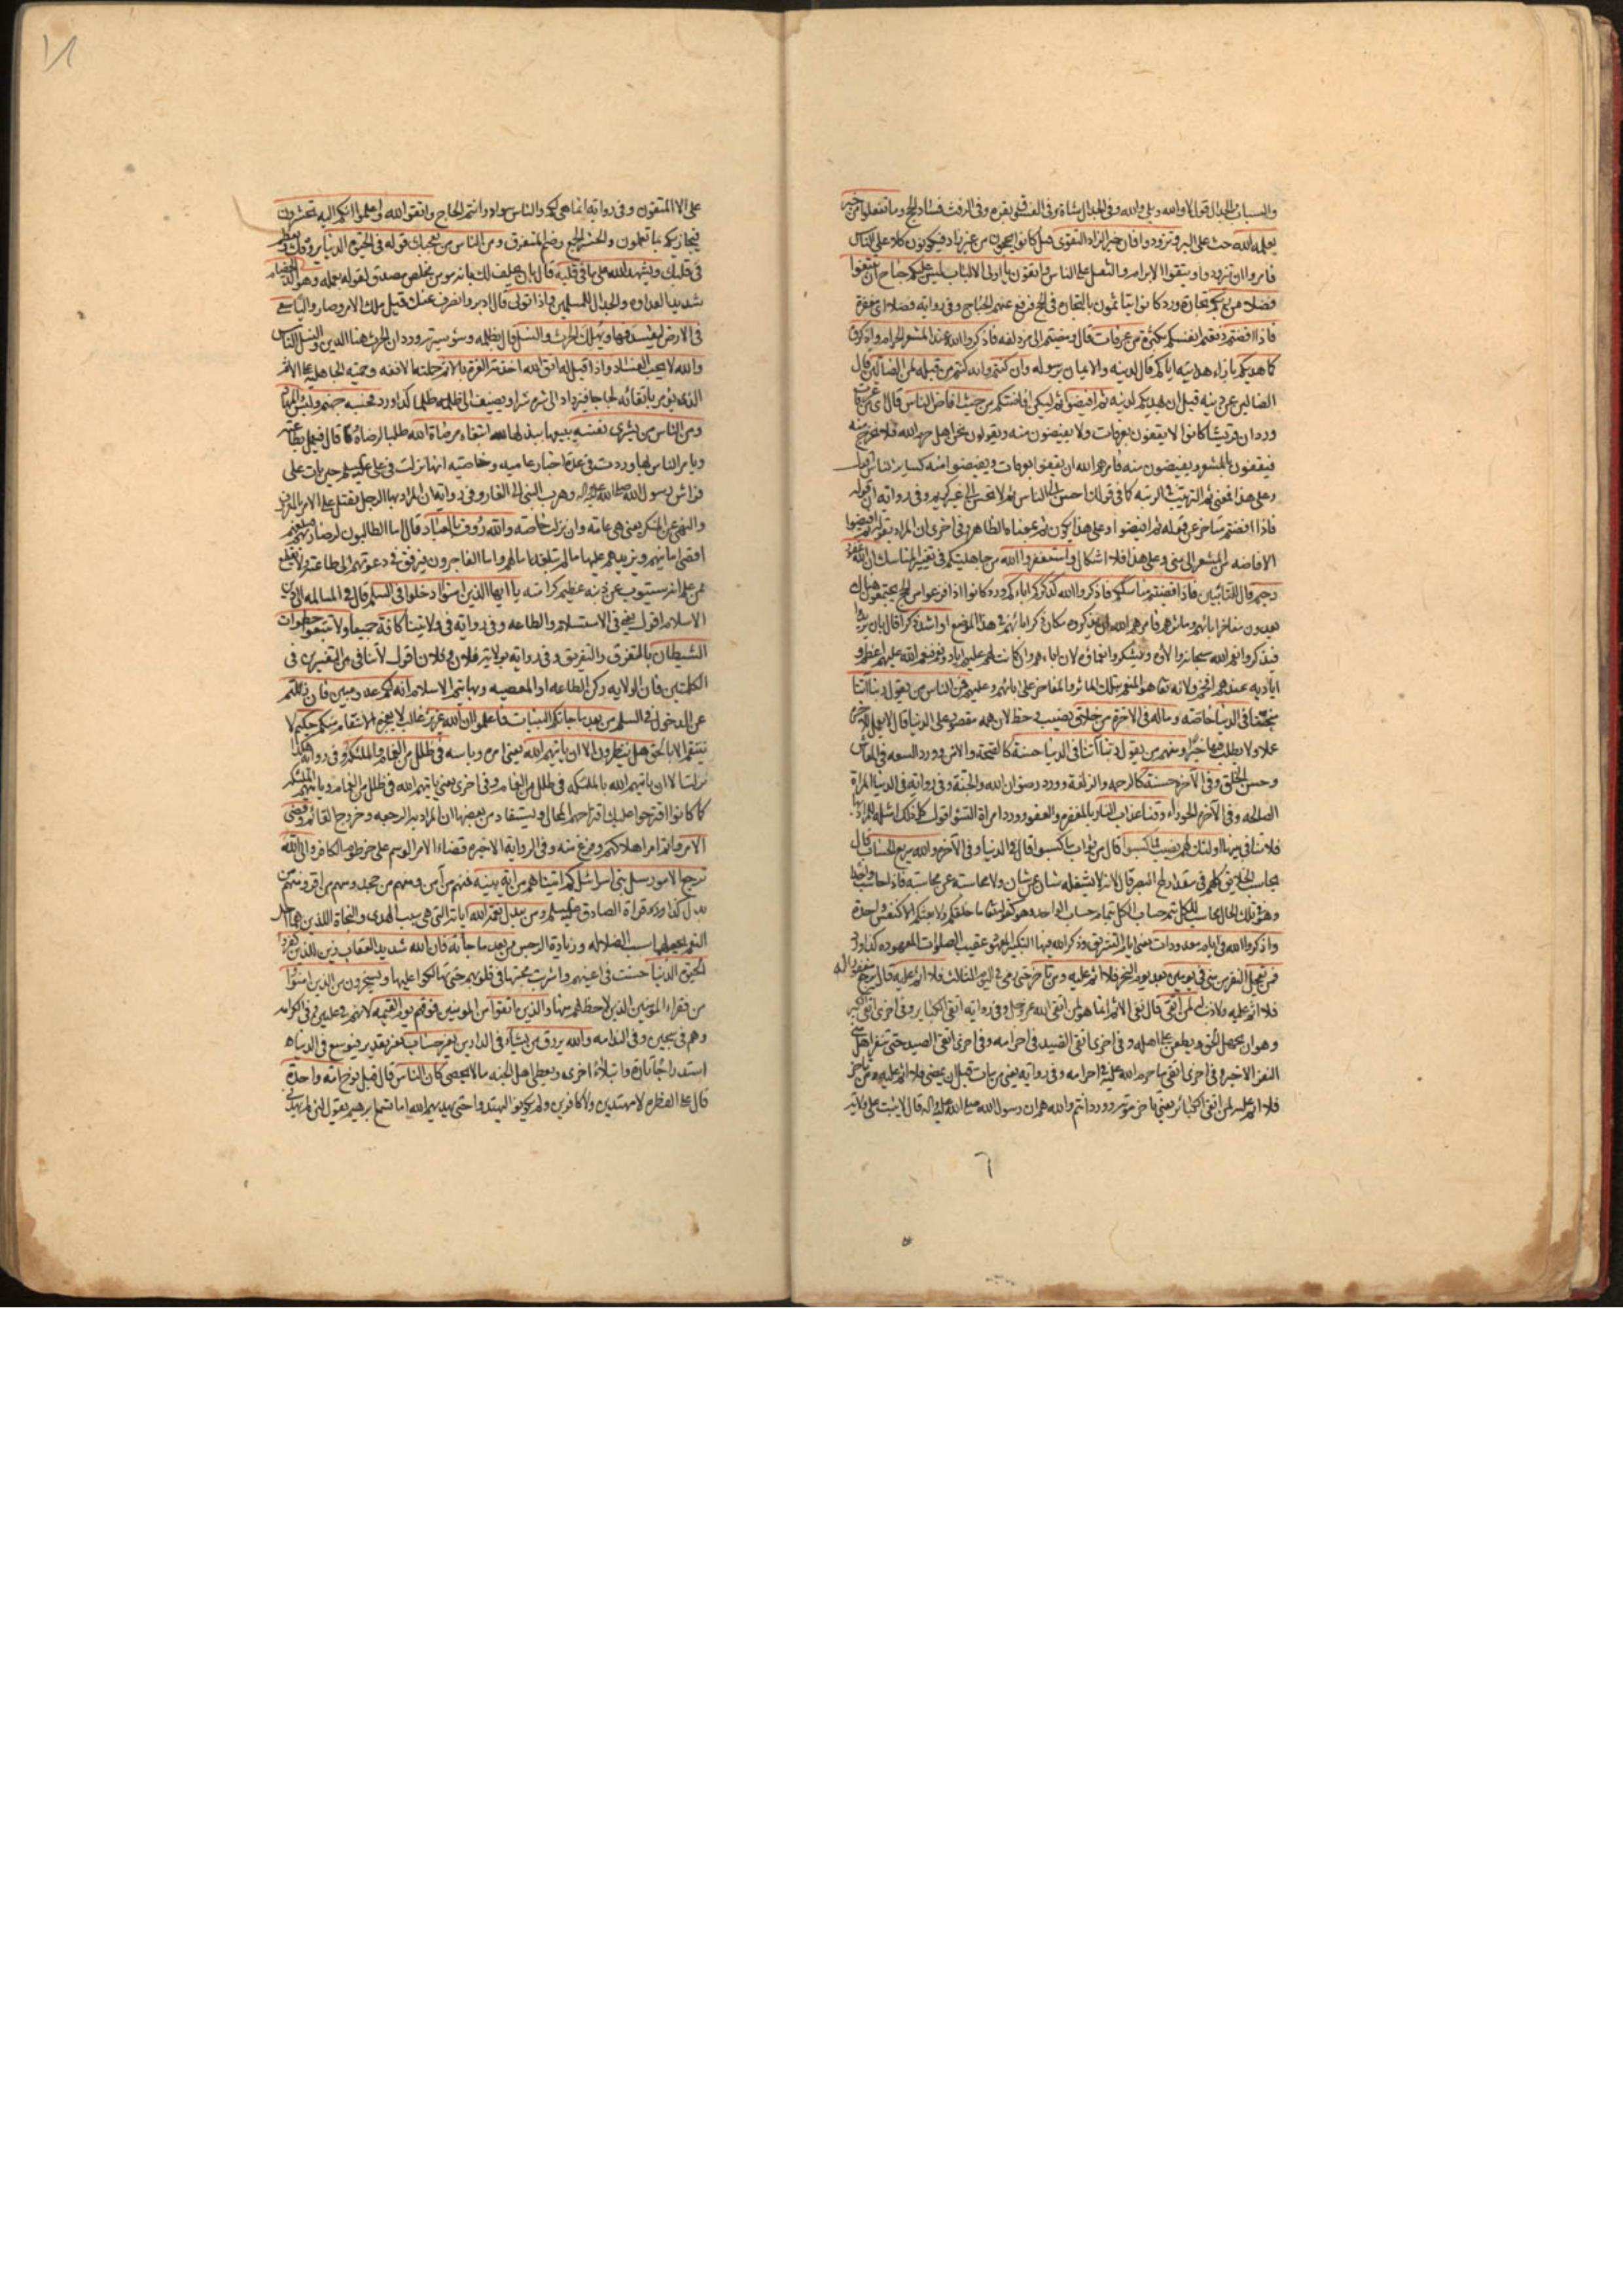 والسباب والجدال قول لا والله وبلى والله وفي الجدال شاة وفي الفسوق بقرة وفي الرفث فساد الحج وما تفعلوا من خير
يعلمه الله حث على البر وتزودوا فان خير الزاد التقوى قيل كانوا يحجون من غير زاد فيكونون كلا على الناس
فامروا ان يتزودوا ويتقوا الابرام والتثقيل على الناس واتقون يا اولى الالباب ليس عليكم جناح ان تبتغوا
فضلا من ربكم تجارة ورد كانوا يتأثمون بالتجارة في الحج فرفع عنهم الجناح وفي رواية فضلا اى مغفرة
فاذا افضتم دفعتم انفسكم بكثرة من عرفات قال ومضيتم الى مزدلفه فاذكروا الله عند المشعر الحرام واذكروه
كما هديكم بازاء هدايته اياكم قال لدينه والايمان برسوله وان كنتم وانه كنتم من قبله لمن الضالين قال
الضالين عن دينه قبل ان يهديكم لدينه ثم افيضوا ثم ليكن افاضتكم من حيث افاض الناس قال اى من عرفات
ورد ان قريشا كانوا لا يقفون بعرفات ولا يفيضون منه ويقولون نحن اهل حرم الله فلا نخرج منه
فيقفون بالمشعر ويفيضون منه فامرهم الله ان يقفوا بعرفات ويفيضوا منه كساير الناس
وعلى هذا فمعنى ثم الترتيب في الرتبه كما في قولنا احسن الى الناس ثم لا تحسن الى غير كريم وفي رواية ان قوله
فاذا افضتم متاخر عن قوله ثم افيضوا وعلى هذا يكون ثم بمعناه الظاهر وفي اخرى ان المراد بقوله ثم افيضوا
الافاضه من المشعر الى منى وعلى هذا فلا اشكال واستغفروا الله من جاهليتكم في تغيير المناسك ان الله غفور
رحيم قال للتائبين فاذا قضيتم مناسككم فاذكروا الله كذكركم اباءكم ورد كانوا اذا فرغوا من الحج يجتمعون هناك
يعدون مفاخر ابائهم ومآثرهم فامرهم الله ان يذكروه مكان ذكر ابائهم في هذا الموضع او اشد ذكرا قال بان يزيدوا
فيذكروا نعم الله سبحانه والاءه ويشكروا نعماؤه لان اباءهم وان كانت لهم عليهم اياد ونعم فنعم الله عليهم اعظم و
اياديه عندهم افخم ولانه تعالى هو المنعم بتلك المآثر والمفاخر على ابائهم وعليهم فمن الناس من يقول ربنا آتنا
منحتنا في الدنيا خاصة وماله في الآخرة من خلاق نصيب وحظ لان همه مقصور على الدنيا قال لا يعمل للآخرة
عملا ولا يطلب فيها خيرا ومنهم من يقول ربنا آتنا في الدنيا حسنة كالصحة والامن وورد السعه في المعاش
وحسن الخلق وفي الآخرة حسنة كالرحمه والزلفة وورد رضوان الله والجنة وفي رواية في الدنيا المراة
الصالحه وفي الآخرة الحوراء وقنا عذاب النار بالمغفرة والعفو وورد امراة السوء اقول كل ذلك امثلة للمراد بها
فلا تنافي بينها اولئك لهم نصيب مما كسبوا قال من ثواب ما كسبوا قال في الدنيا وفي الآخرة والله سريع الحساب قال
يحاسب الخلايق كلهم في مقدار لمح البصر قال لانه لا يشغله شان عن شان ولا محاسبة عن محاسبة فاذا حاسب واحدا
وهو في تلك الحال محاسب للكل يتم حساب الكل بتمام حساب الواحد وهو كقوله تعالى ما خلقكم ولا بعثكم الا كنفس واحدة
واذكروا الله في ايام معدودات يعنى ايام التشريق وذكر الله فيها التكبير المعهود عقيب الصلوات المعهوده كذا ورد
فمن تعجل النفر من منى في يومين بعد يوم النحر فلا اثم عليه ومن تاخر حتى رمى في اليوم الثالث فلا اثم عليه قال يرجع مغفورا له
فلا اثم عليه ولا ذنب لمن اتقى قال نفي الاثم انما هو لمن اتقى الله عز وجل وفي رواية اتقى الكباير وفي اخرى اتقى الكبر
وهو ان يجهل الحق ويطعن على اهله وفي اخرى اتقى الصيد في احرامه وفي اخرى اتقى الصيد حتى ينفر اهل منى
النفر الاخير وفي اخرى اتقى ما حرم الله عليه في احرامه وفي رواية يعنى من مات قبل ان يمضى فلا اثم عليه ومن تاخر
فلا اثم عليه لمن اتقى الكبائر يعنى تاخر موته وورد انتم والله هم ان رسول الله صلى الله عليه واله قال لا يثبت على ولاية
على الا المتقون وفي رواية انما هي لكم والناس سواد وانتم الحاج واتقوا الله واعلموا انكم اليه تحشرون
فيجازيكم بما تعملون والحشر الجمع وضم المتفرق ومن الناس من يعجبك قوله في الحيوة الدنيا يروقك ويعظم
في قلبك ويشهد الله على ما في قلبه قال بان يحلف لك بانه مومن مخلص مصدق لقوله بعمله وهو الد الخصام
شديد العداوة والجدال للمسلمين واذا تولى قال ادبر وانصرف عنك قيل ملك الامر وصار واليا سعى
في الارض ليفسد فيها ويهلك الحرث والنسل قال بظلمه وسوء سيرته وورد ان الحرث هنا الدين والنسل الناس
والله لا يحب الفساد واذا قيل له اتق الله اخذته العزة بالاثم حملته الانفه وحمية الجاهلية على الاثم
الذى يؤمر باتقائه لجاجا فيزداد الى شره شرا ويضيف الى ظلمه ظلما كذا ورد فحسبه جهنم ولبئس المهاد
ومن الناس من يشرى نفسه يبيعها يبذلها لله ابتغاء مرضاة الله طلبا لرضاه كما قال فيعمل بطاعته
ويامر الناس بها وردت في عدة اخبار عاميه وخاصيه انها نزلت في على عليه السلام حين بات على
فراش رسول الله صلى الله عليه واله وهرب النبى الى الغار وفي رواية ان المراد بها الرجل يقتل على الامر بالمعروف
والنهى عن المنكر يعنى هى عامه وان نزلت خاصه والله رؤوف بالعباد قال اما الطالبون لرضاه فيبلغهم
اقصى امانيهم ويزيدهم عليها ما لم تبلغه امالهم واما الفاجرون فيرفق في دعوتهم الى طاعته ولا يقطع
من علم انه سيتوب عن ذنبه عظيم كرامته يا ايها الذين امنوا ادخلوا في السلم قال في المسالمه الى دين
الاسلام اقول يعنى في الاستسلام والطاعه وفي رواية في ولايتنا كافة جميعا ولا تتبعوا خطوات
الشيطان بالتفرق والتفريق وفي رواية بولاية فلان وفلان اقول لا تنافي بين التفسيرين في
الكلمتين فان الولايه ركن الطاعه او المعصيه وبها يتم الاسلام انه لكم عدو مبين فان زللتم
عن الدخول في السلم من بعد ما جاءتكم البينات فاعلموا ان الله عزيز غالب لا يعجزه الانتقام منكم حكيم لا
ينتقم الا بالحق هل ينظرون الا ان ياتيهم الله يعنى امره وباسه في ظلل من الغمام والملئكة وفي رواية هكذا
نزلت الا ان ياتيهم الله بالملئكه في ظلل من الغمام وفي اخرى يعنى ياتيهم الله في ظلل من الغمام وياتيهم الملئكه
كما كانوا اقترحوا عليك اقتراحهم المحال ويستفاد من بعضها ان المراد به الرجعه وخروج القائم وقضى
الامر واتم امر اهلاكهم وفرغ منه وفي الرواية الاخيرة قضاء الامر الوسم على خرطوم الكافر والى الله
ترجع الامور سل بنى اسرائيل كم اتيناهم من اية بينة فمنهم من آمن ومنهم من جحد ومنهم من اقر ومنهم من
بدل كذا ورد قراءة الصادق عليه السلام ومن يبدل نعمة الله اياته التى هي سبب الهدى والنجاة اللذين هما اجل
النعم بجعلها سبب الضلاله وزيادة الرجس من بعد ما جاءته فان الله شديد العقاب زين للذين كفروا
الحيوة الدنيا حسنت في اعينهم واشربت محبتها في قلوبهم حتى تهالكوا عليها ويسخرون من الذين امنوا
من فقراء المؤمنين الذين لا حظ لهم منها والذين اتقوا من المومنين فوقهم يوم القيمه لانهم في عليين وفي الكرامه
وهم في سجين وفي الندامه والله يرزق من يشاء في الدارين بغير حساب بغير تقدير فيوسع في الدنيا
استدراجا تارة وابتلاء اخرى ويعطى اهل الجنه مالا يحصى كان الناس قال قبل نوح امة واحدة
قال على الفطرة لا مهتدين ولا كافرين ولم يكونوا ليهتدوا حتى يهديهم الله اما تسمع ابرهيم يقول لئن لم يهدنى